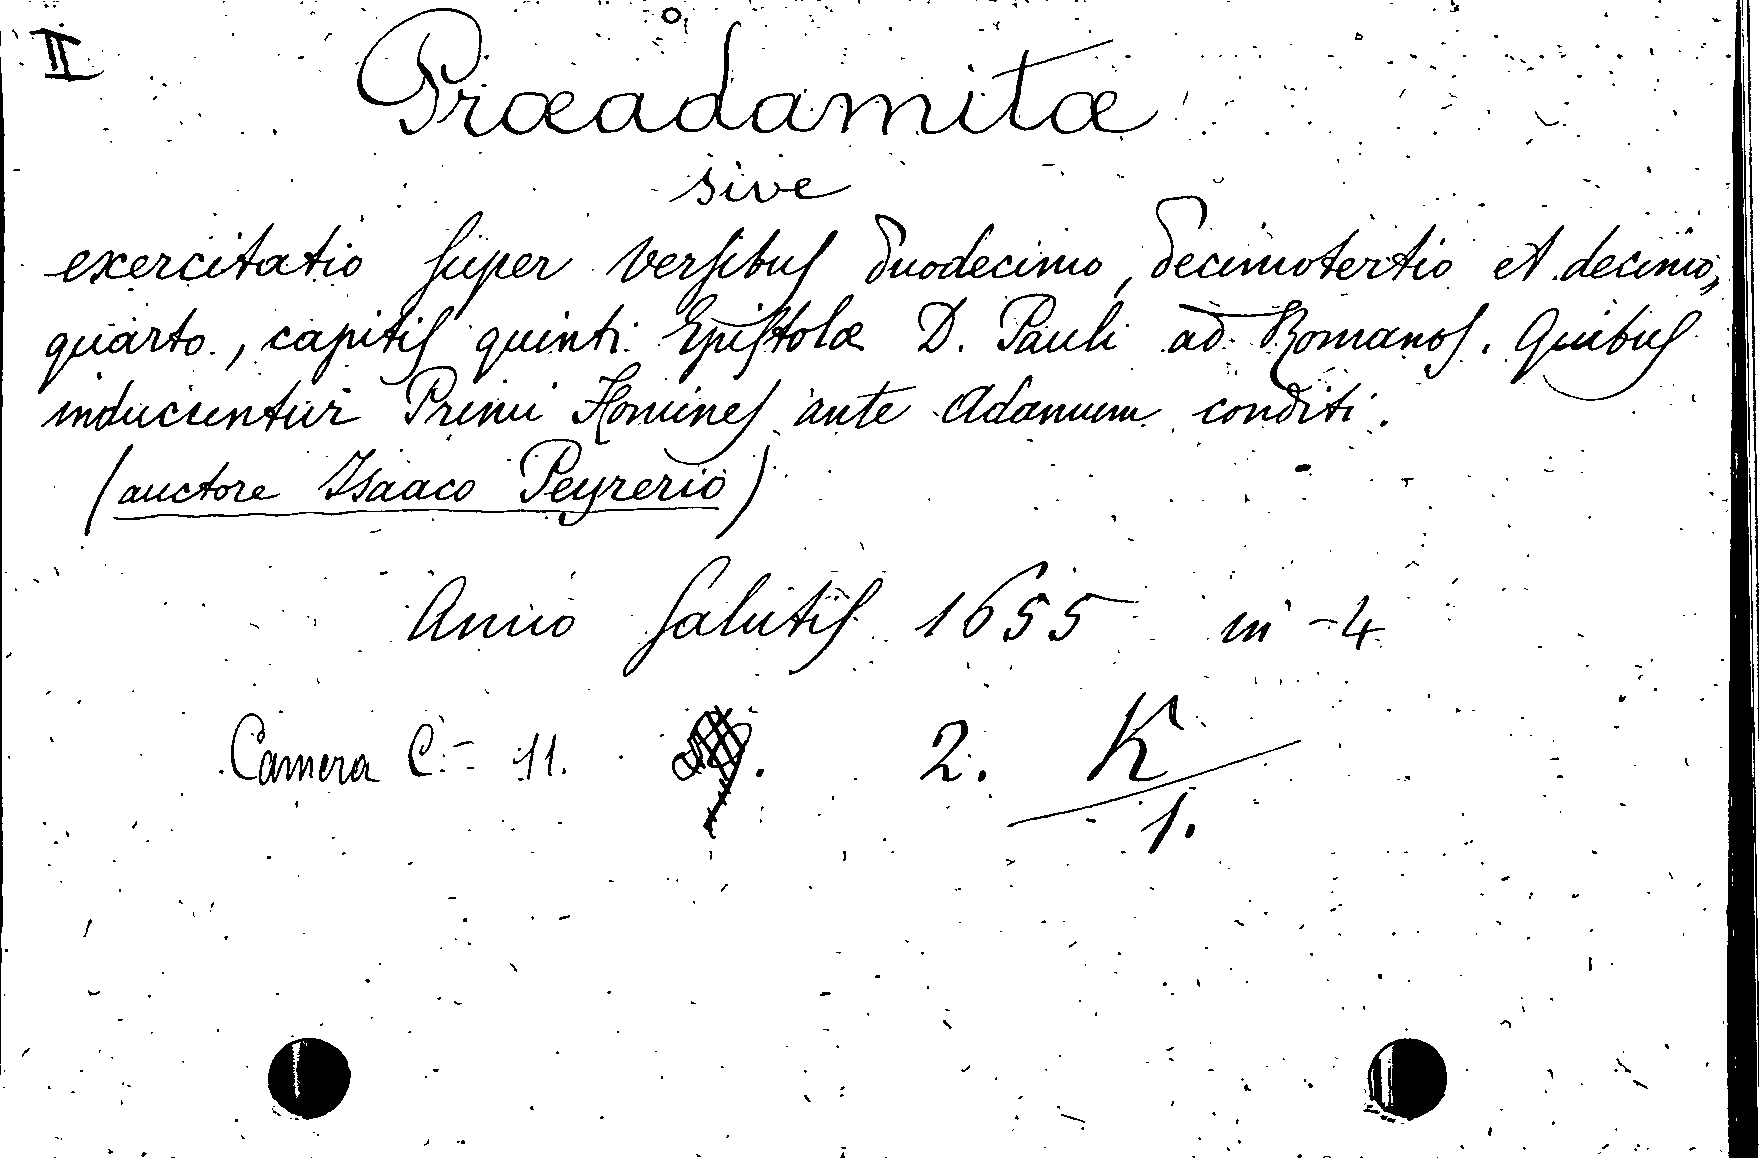 II
Præadamitæ
sive
exercitatio super versibus duodecimo, decimotertio et decimo,
quarto, capitis quinti Epistolæ D. Pauli ad Romanos. Quibus
inducuntur Primi Homines ante Adamum conditi.
(auctore Isaaco Peyrerio)
Anno Salutis 1655 in -4
Camera C - 11. 2. K
1.